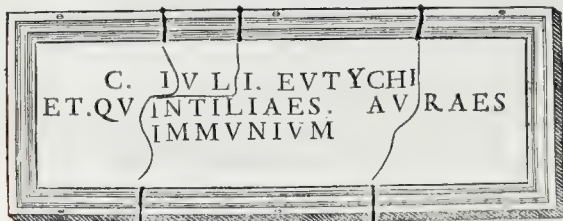 C. IVLI. EVTYCHI
ET.QV INTILIAES. AVRAES
IMMVNIVM